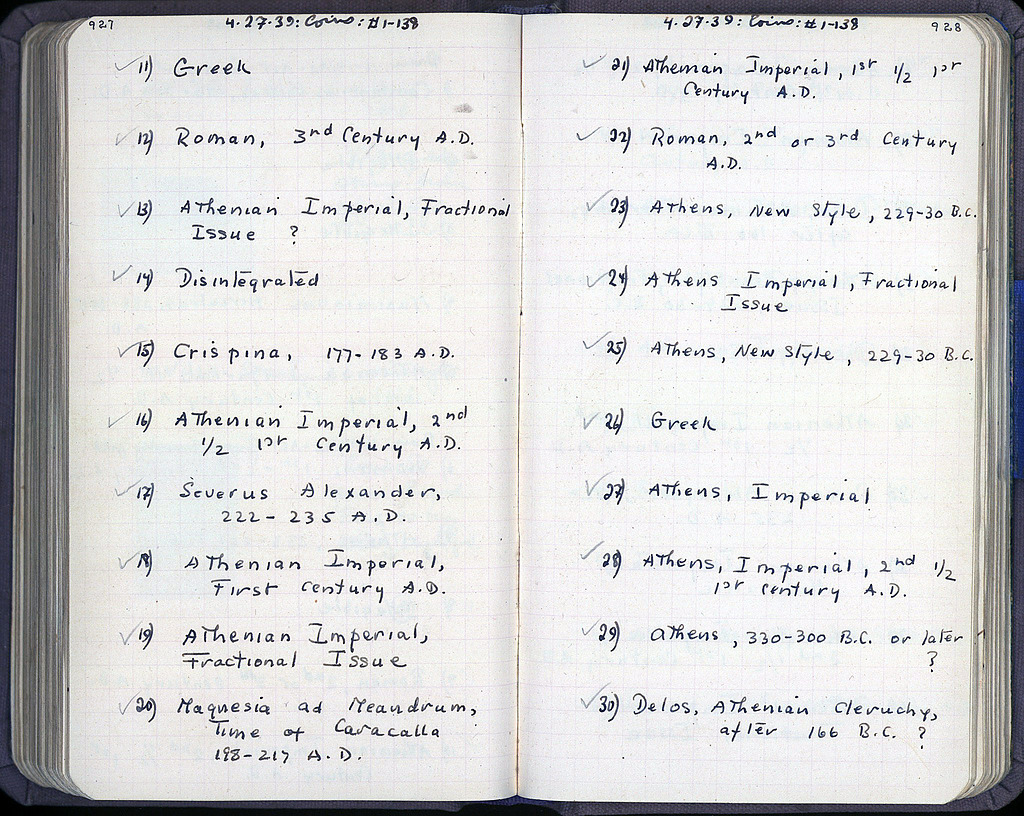 927
4.27.39: Coins: #1-138
11) Greek
12) Roman, 3rd Century A.D.
13) Athenian Imperial, Fractional
Issue ?
14) Disintegrated
15) Crispina, 177-183 A.D.
16) Athenian Imperial, 2nd
1/2 1st Century A.D.
17) Severus Alexander,
222-235 A.D.
18) Athenian Imperial,
First Century A.D.
19) Athenian Imperial,
Fractional Issue
20) Magnesia ad Meandrum,
Time of Caracalla
198-217 A.D.
928
4.27.39: Coins: #1-138
21) Athenian Imperial, 1st 1/2 1st
Century A.D.
22) Roman, 2nd or 3rd Century
A.D.
23) Athens, New Style, 229-30 B.C.
24) Athens Imperial, Fractional
Issue
25) Athens, New Style, 229-30 B.C.
26) Greek
27) Athens, Imperial
28) Athens, Imperial, 2nd 1/2
1st Century A.D.
29) Athens, 330-300 B.C. or later
?
30) Delos, Athenian Cleruchy,
after 166 B.C. ?